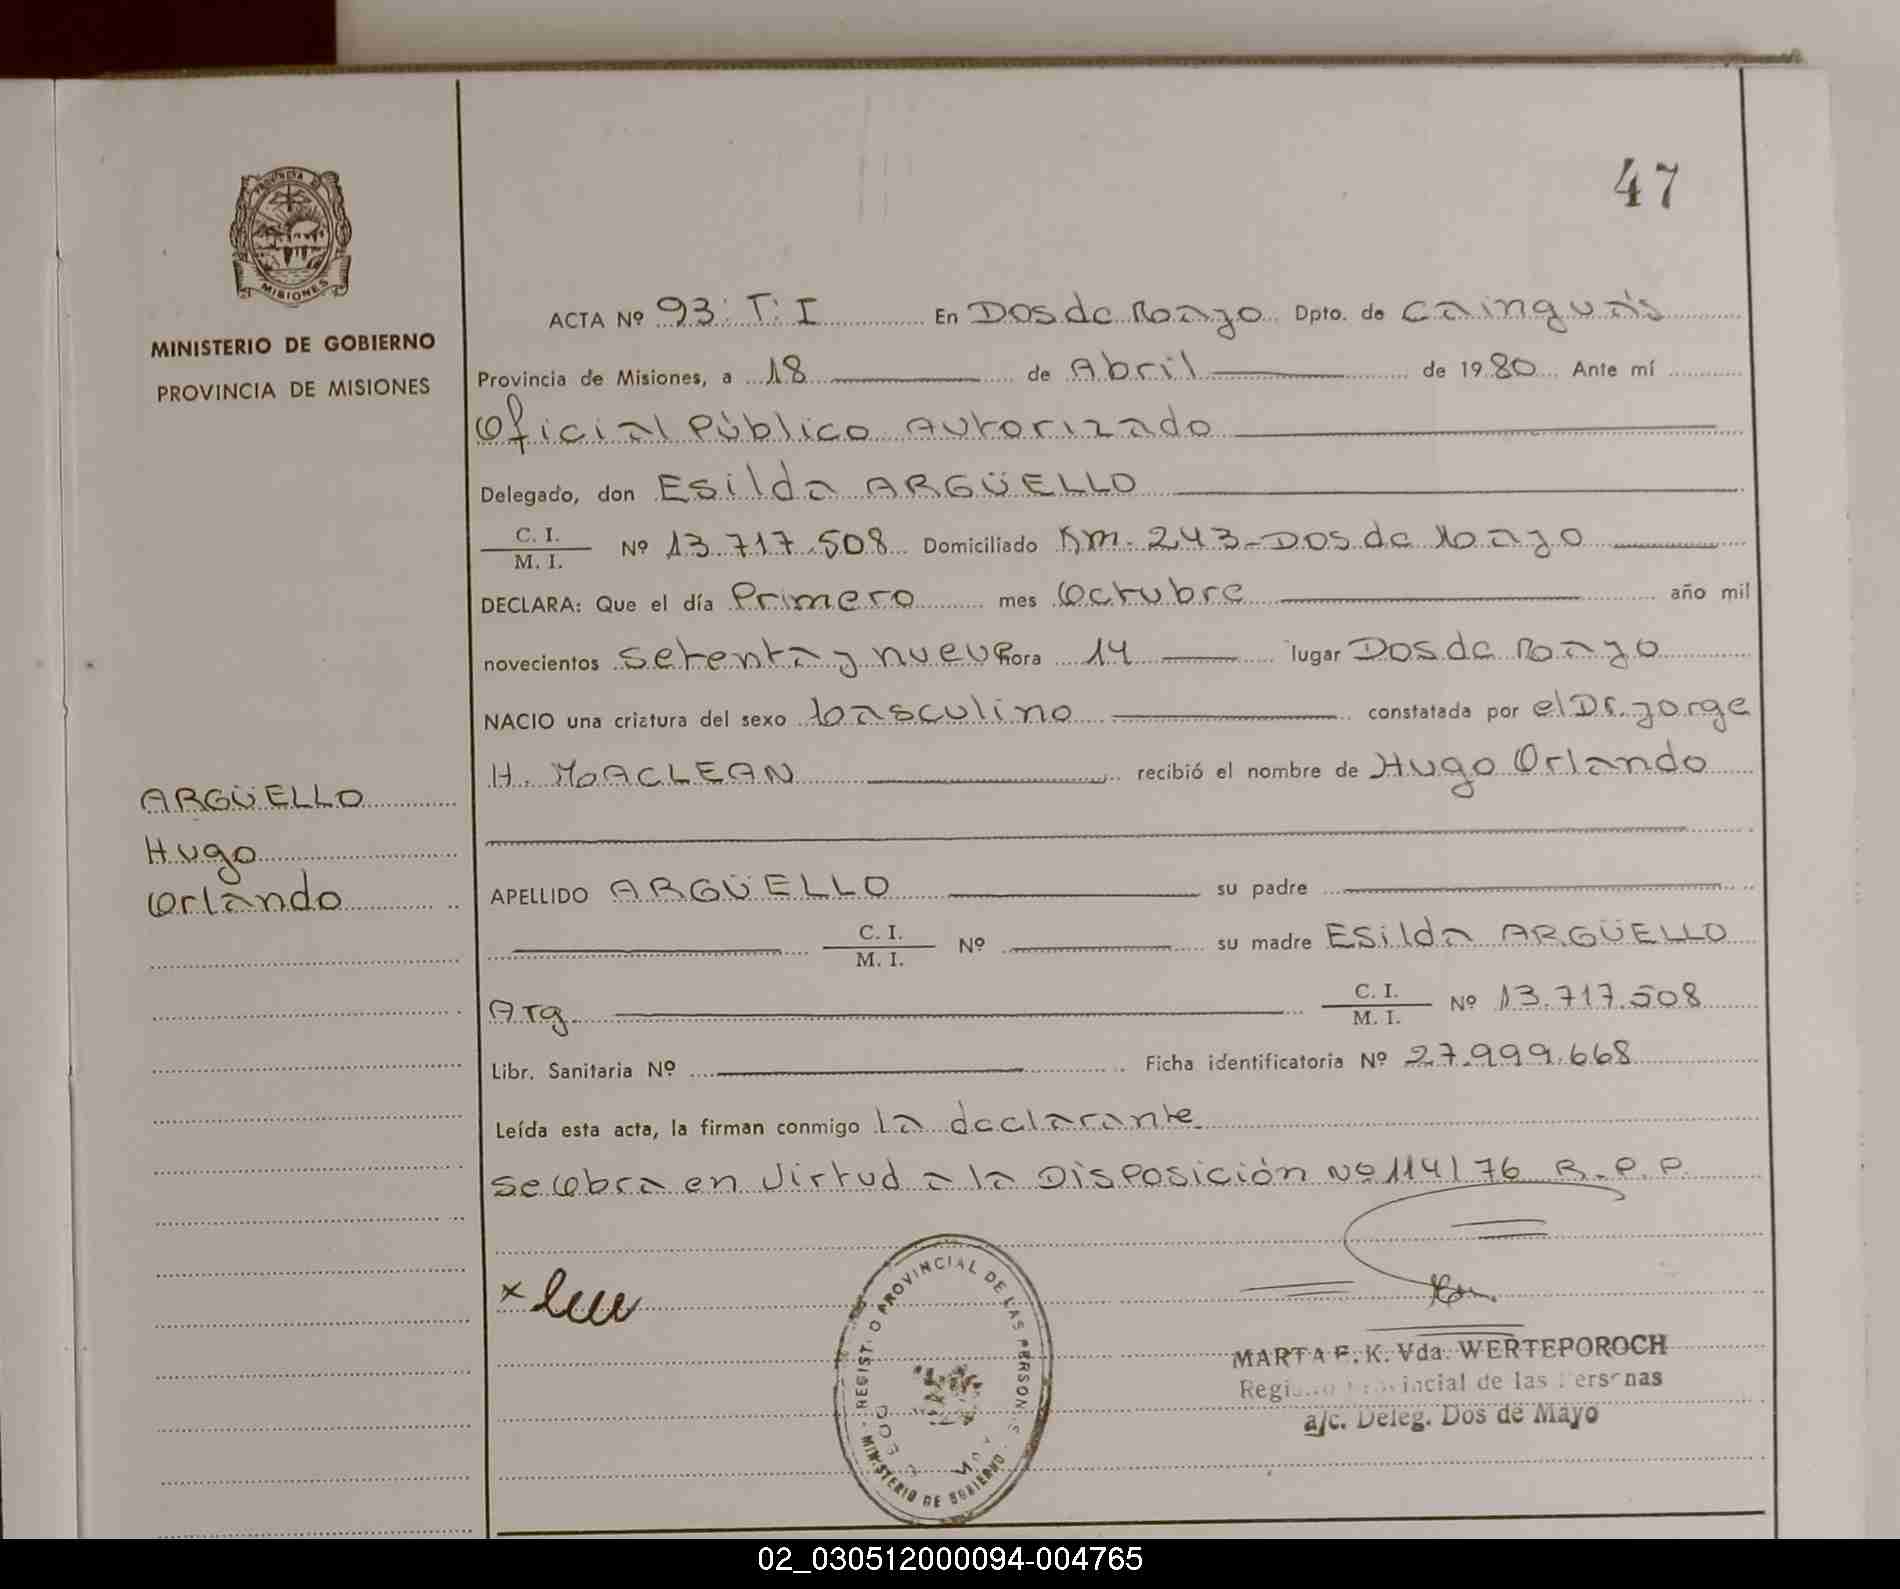 47
PROVINCIA DE
MISIONES
MINISTERIO DE GOBIERNO
PROVINCIA DE MISIONES
ARGÜELLO
Hugo
Orlando
ACTA Nº 93: T: I En Dos de Mayo Dpto. de Cainguás
Provincia de Misiones, a 18 de Abril de 1980 Ante mí
Oficial Público Autorizado
Delegado, don Esilda ARGÜELLO
C. I.
M. I. Nº 13.717.508 Domiciliado Km. 243-Dos de Mayo
DECLARA: Que el día Primero mes Octubre año mil
novecientos setenta y nueve hora 14 lugar Dos de Mayo
NACIO una criatura del sexo Masculino constatada por el Dr. Jorge
H. MACLEAN recibió el nombre de Hugo Orlando
APELLIDO ARGÜELLO su padre
C. I.
M. I. Nº su madre Esilda ARGÜELLO
Arg. C. I.
M. I. Nº 13.717.508
Libr. Sanitaria Nº Ficha identificatoria Nº 27.999.668
Leída esta acta, la firman conmigo la declarante
se obra en virtud a la Disposición Nº 114/76 R.P.P.
REGISTRO PROVINCIAL DE LAS PERSONAS
MINISTERIO DE GOBIERNO
MARTA E. K. Vda. WERTEPOROCH
Registro Provincial de las Personas
a/c. Deleg. Dos de Mayo
02_030512000094-004765